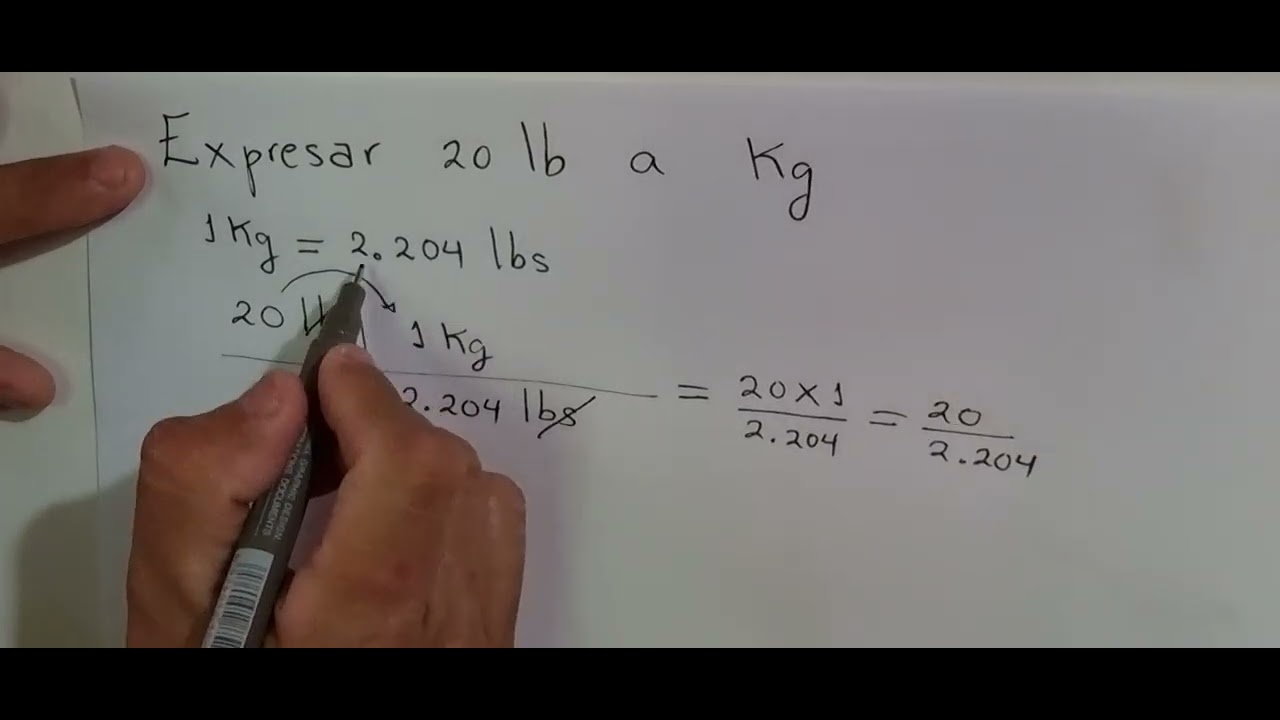 Expresar 20 lb a Kg
1 Kg = 2.204 lbs
20
1 Kg
2.204 lbs
= 20 x 1 / 2.204 = 20 / 2.204
GRAPHIC DESIGN
DOCUMENTS